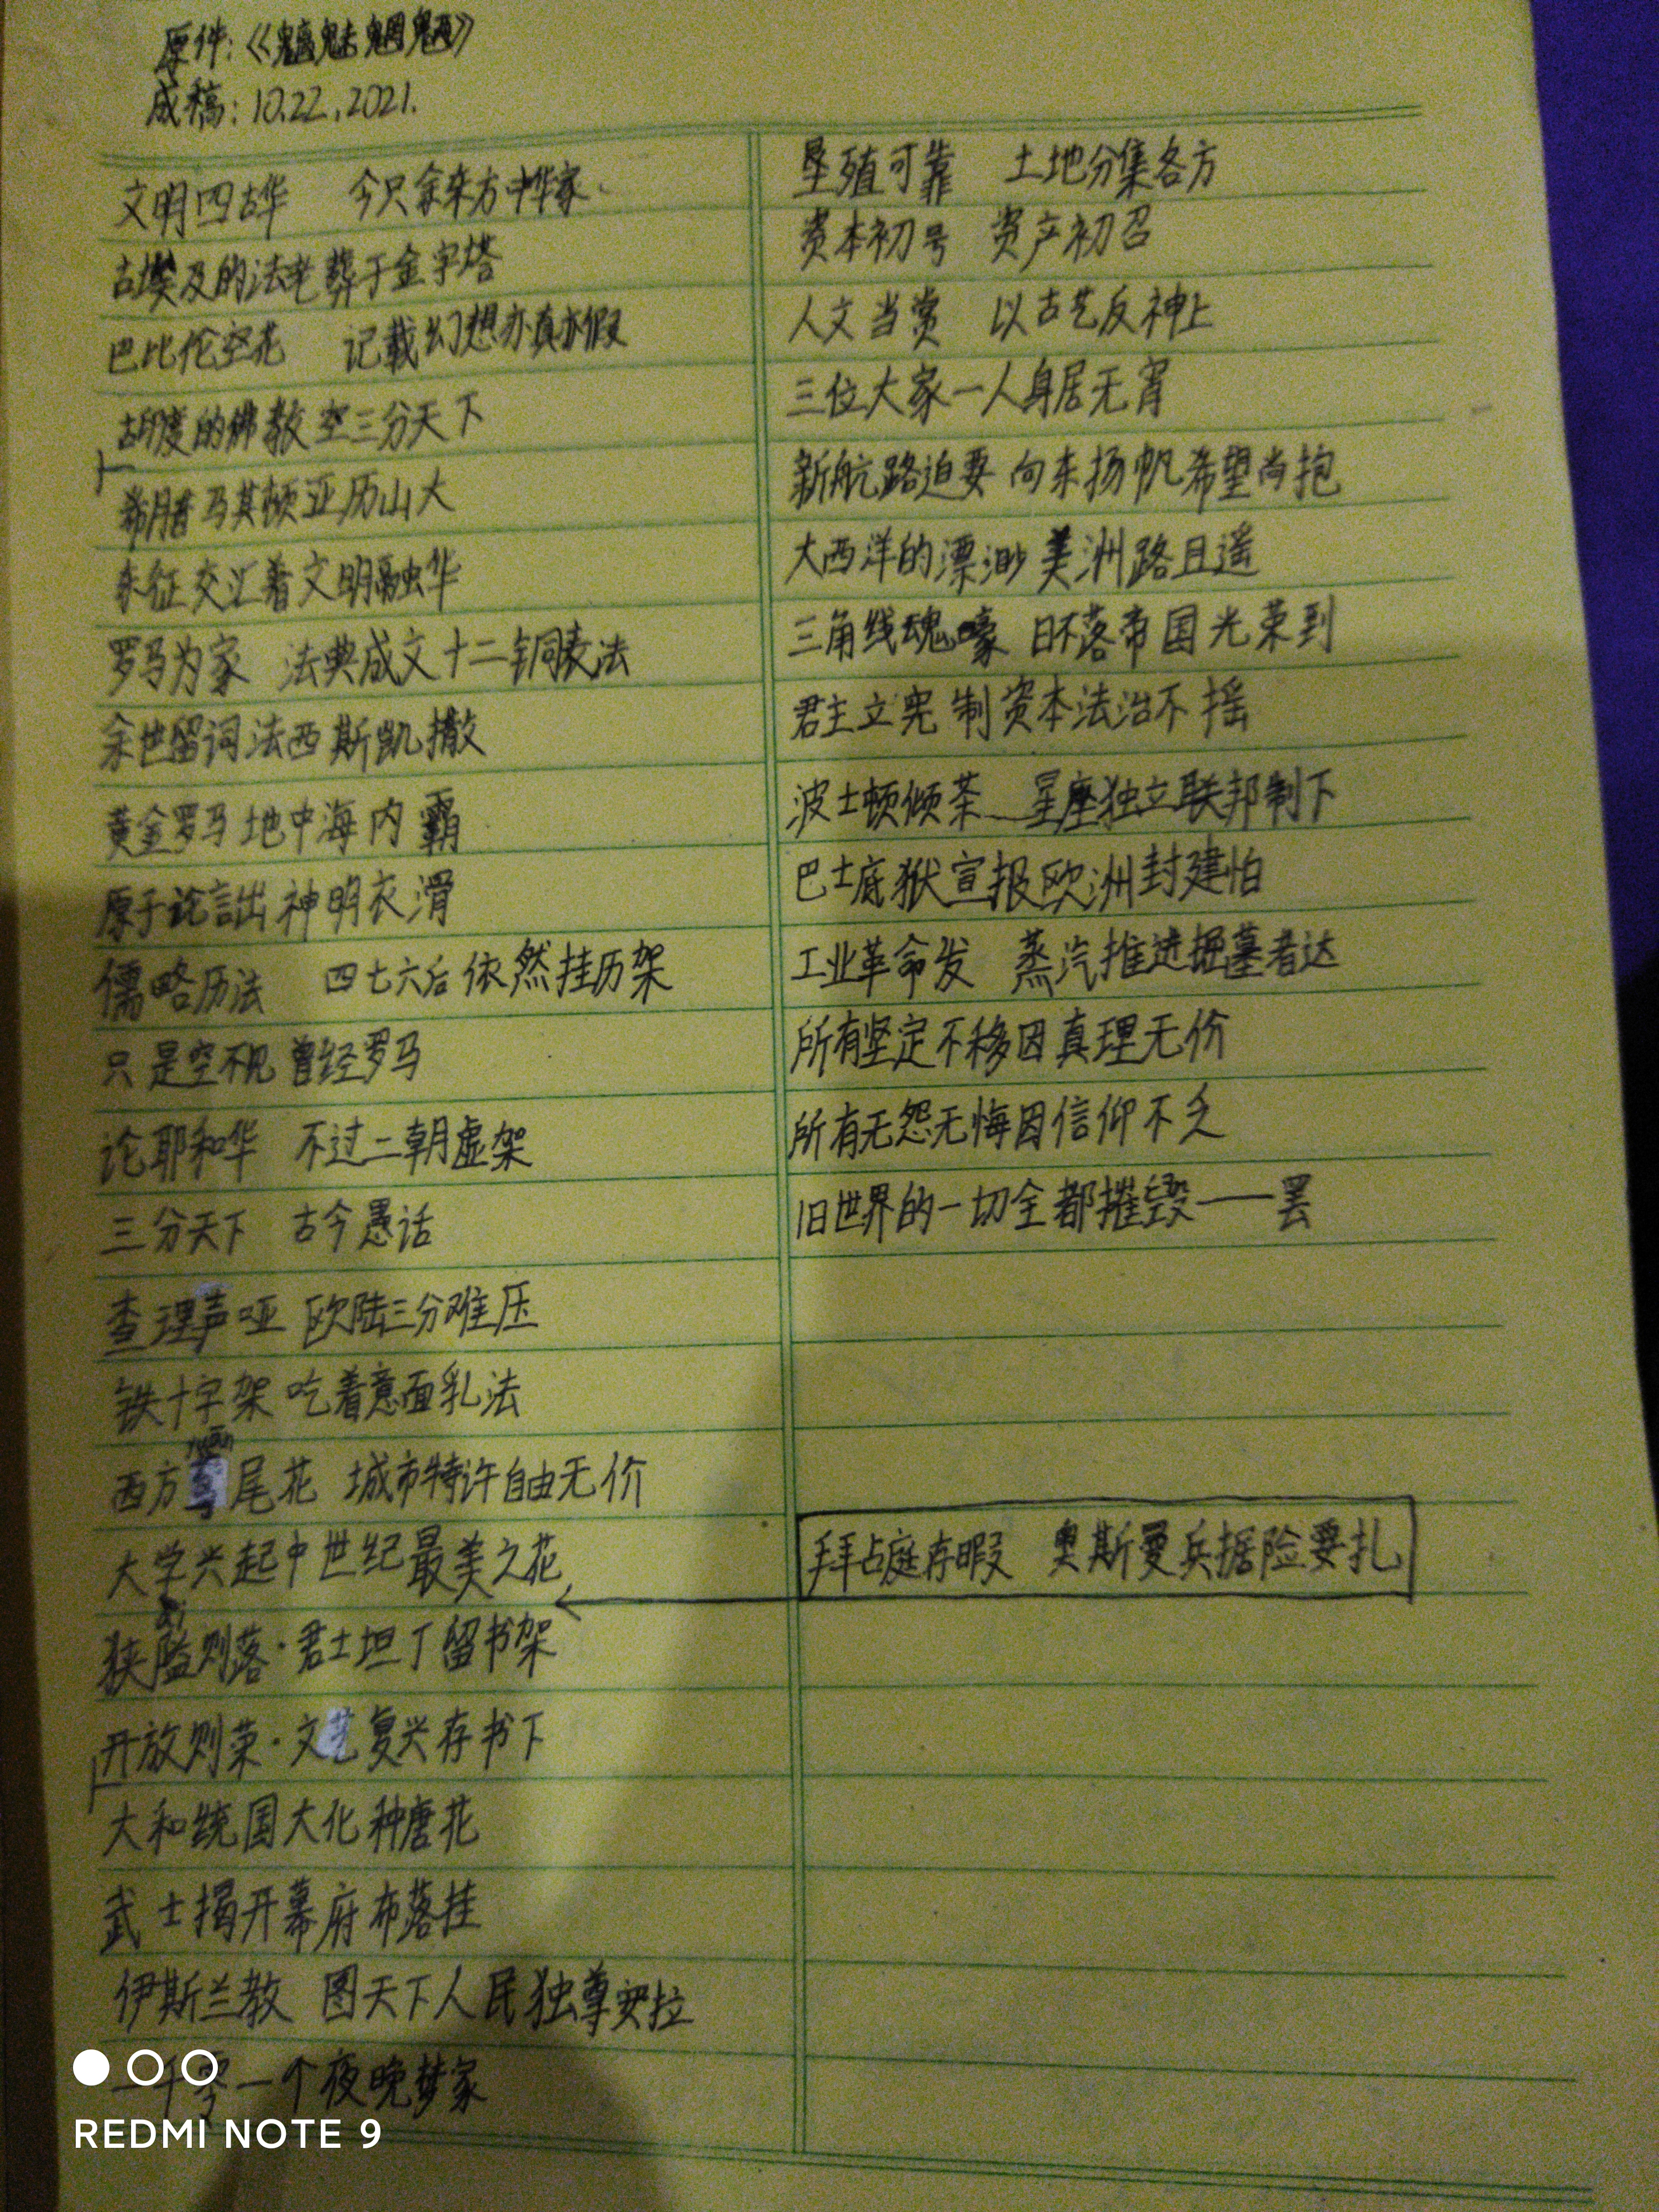 原件:《魑魅魍魉》
成稿:10.22.2021.
文明四古华 今只余东方中华家
古埃及的法老葬于金字塔
巴比伦空花 记载幻想亦真亦假
古印度的佛教空三分天下
希腊马其顿亚历山大
东征交汇着文明融华
罗马为家 法典成文十二铜表法
余世留词法西斯凯撒
黄金罗马地中海内霸
原子论言出神明衣滑
儒略历法 四七六后依然挂历架
只是空不见曾经罗马
论耶和华 不过二朝虚架
三分天下 古今愚话
查理声哑 欧陆三分难压
铁十字架 吃着意面乳法
西方鸢尾花 城市特许自由无价
大学兴起中世纪最美之花
狭隘则落·君士坦丁留书架
开放则荣·文艺复兴存书下
大和统国大化种唐花
武士揭开幕府布落挂
伊斯兰教 图天下人民独尊安拉
一千零一个夜晚梦家
垦殖可靠 土地分集各方
资本初号 资产初召
人文当赏 以古艺反神上
三位大家一人身居无宵
新航路迫要 向东扬帆希望尚抱
大西洋的漂渺 美洲路且遥
三角线魂嚎 日不落帝国光荣到
君主立宪制资本法治不摇
波士顿倾茶 星座独立联邦制下
巴士底狱宣报欧洲封建怕
工业革命发 蒸汽推进掘墓者达
所有坚定不移因真理无价
所有无怨无悔因信仰不乏
旧世界的一切全都摧毁——罢
拜占庭存暇 奥斯曼兵据险要扎
REDMI NOTE 9